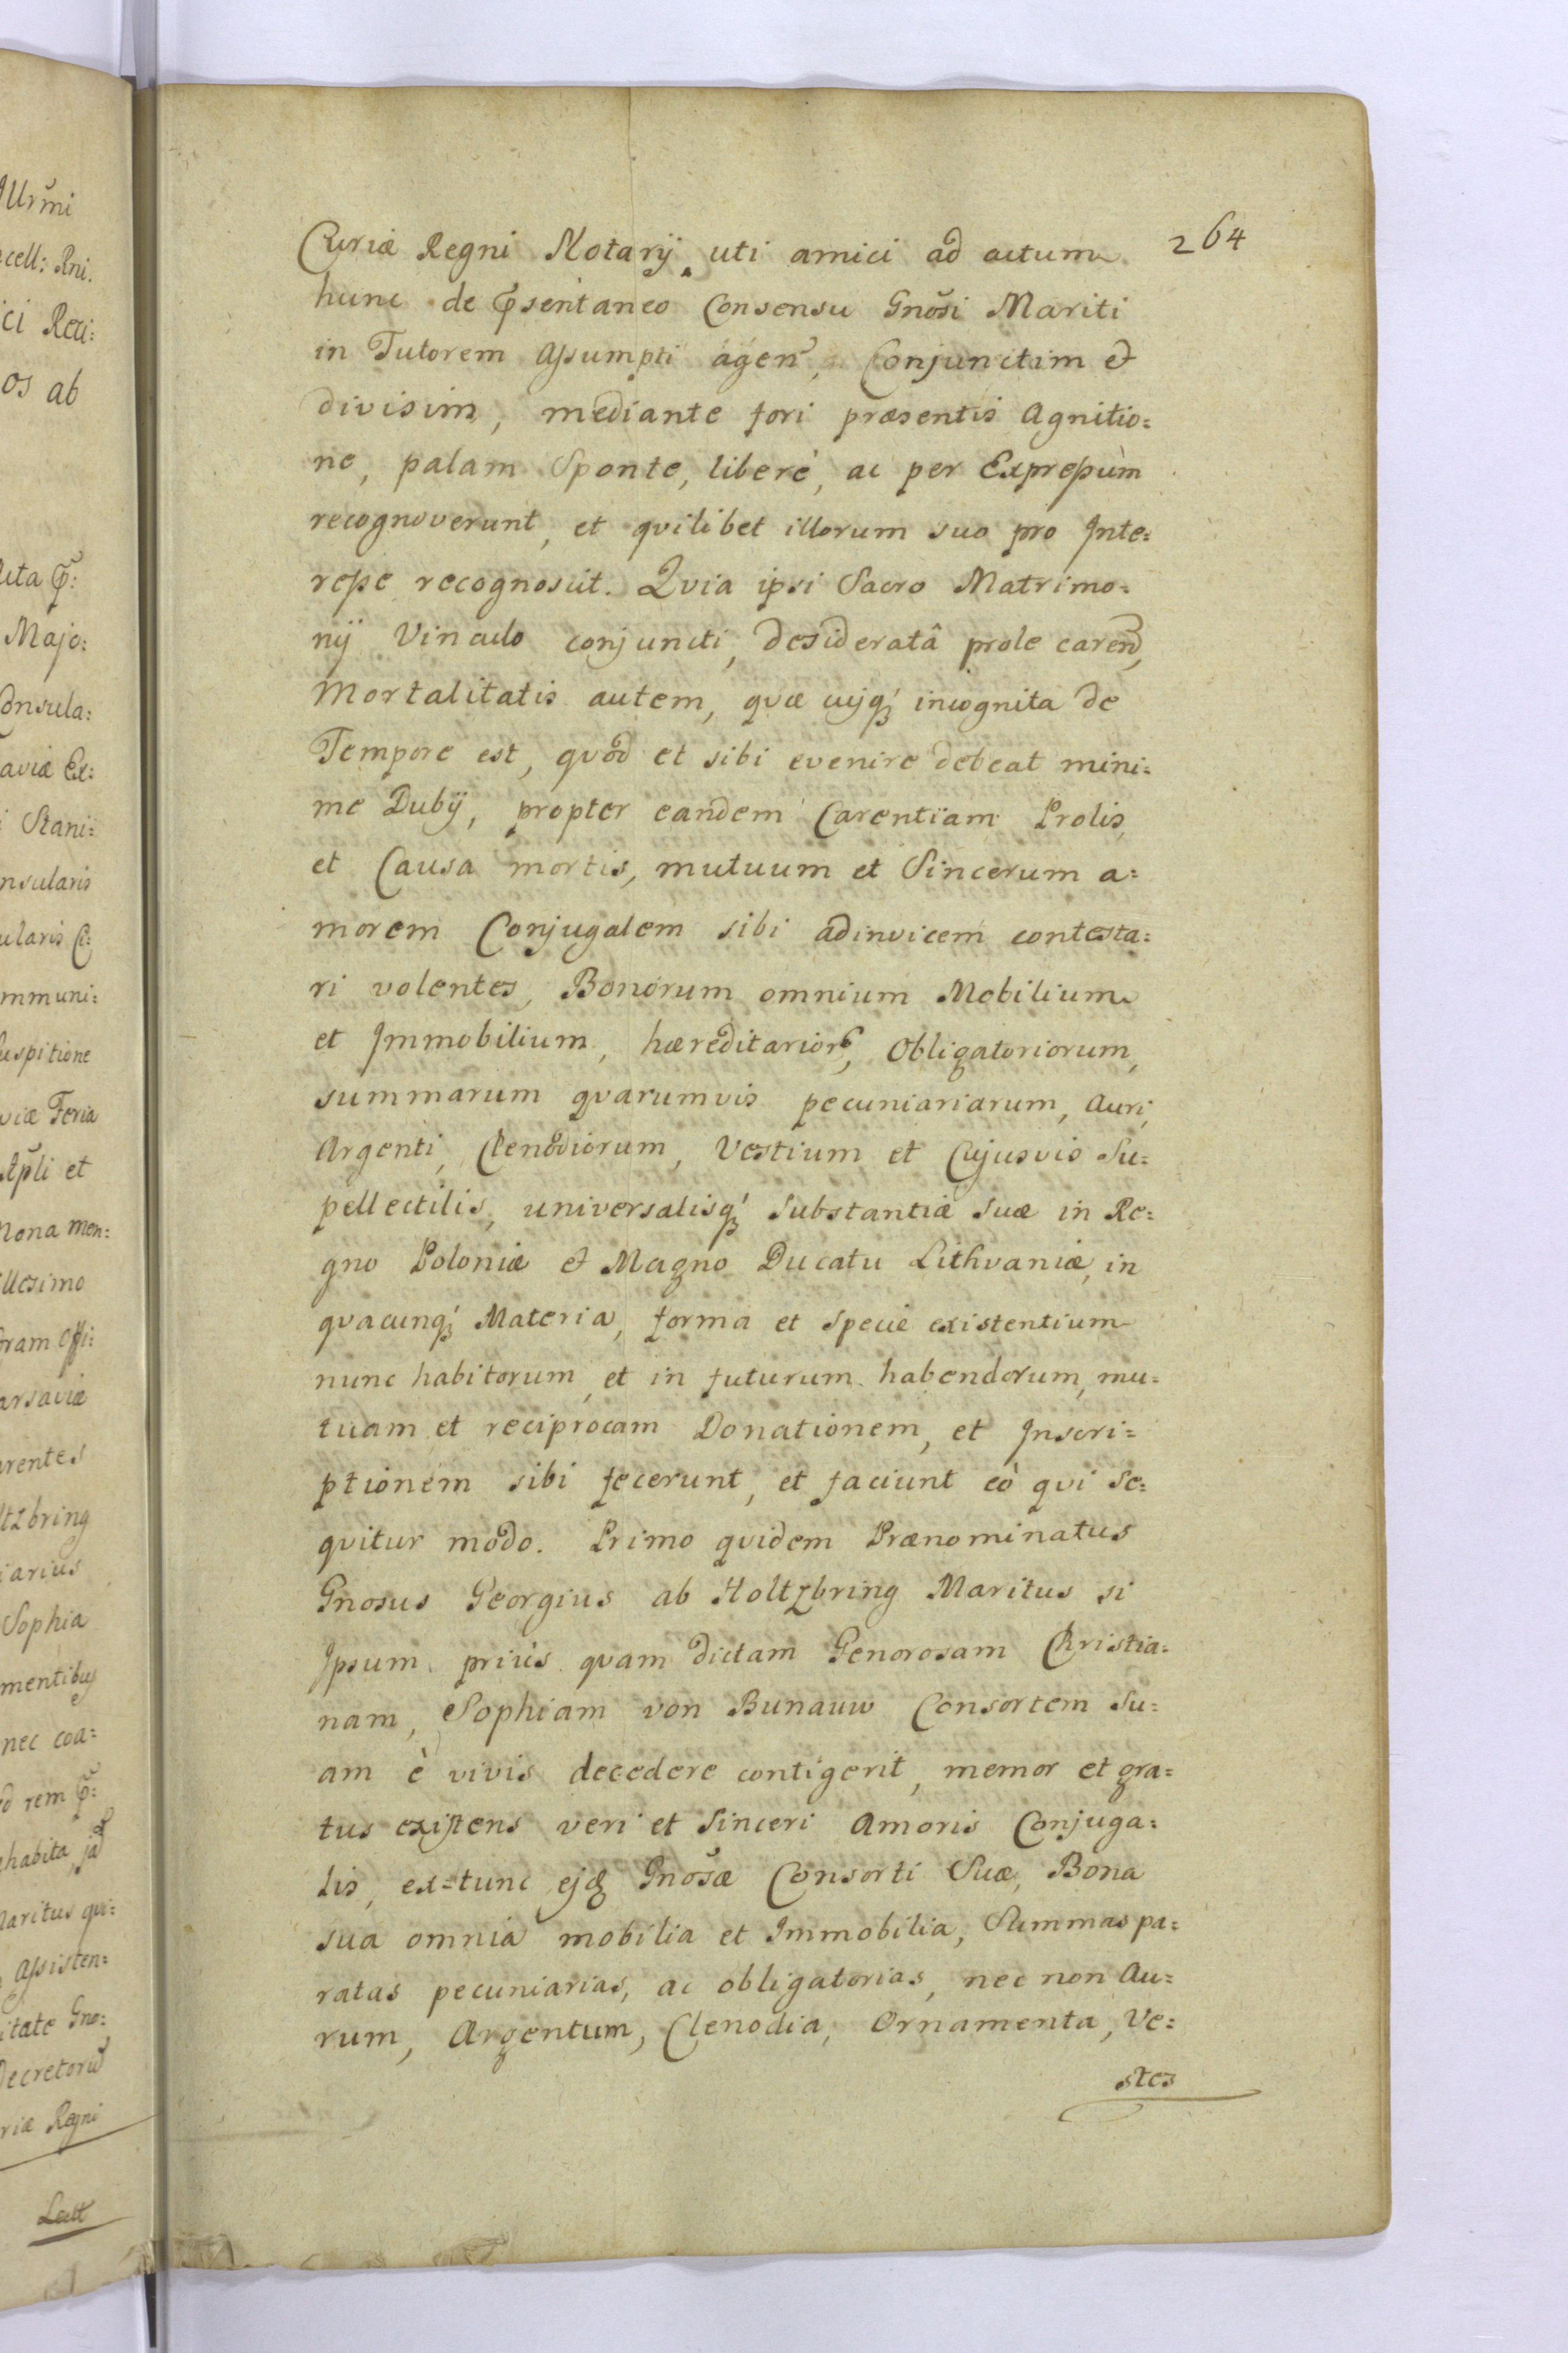 264
Curiæ Regni Notarij, uti amici ad actum
hunc de p̃sentaneo Consensu Gnõsi Mariti
in Tutorem Assumpti agen̄, Conjunctim et
divisim, mediante fori præsentis Agnitio=
ne, palam Sponte, liberè, ac per Expressùm
recognoverunt, et qvilibet illorum suo pro Inte=
resse recognoscit. Qvia ipsi Sacro Matrimo=
nij Vinculo conjuncti, desideratâ prole caren̄,
Mortalitatis autem, qvæ cuiq́ incognita de
Tempore est, qvod et sibi evenire debeat mini=
me Dubij, propter eandem Carentiam Prolis,
et Causa mortis, mutuum et Sincerum a=
morem Conjugalem sibi adinvicem contesta=
ri volentes, Bonorum omnium Mobilium
et Immobilium, hæreditarior̃, Obligatoriorum,
summarum qvarumvis pecuniariarum, Auri,
Argenti, Clenodiorum, Vestium et Cujusvis Su=
pellectilis, universalisq́ Substantiæ suæ in Re=
gno Poloniæ et Magno Ducatu Lithvaniæ, in
qvacunq́ Materia, forma et specie existentium
nunc habitorum, et in futurum habendorum, mu=
tuam et reciprocam Donationem, et Inscri=
ptionem sibi fecerunt, et faciunt eò qui se=
qvitur modo. Primo qvidem Prænominatus
Gnosus Georgius ab Holtzbring Maritus si
Ipsum priùs qvam dictam Generosam Christia=
nam, Sophiam von Bunauw Consortem Su=
am è vivis decedere contigerit, memor et gra=
tus existens veri et Sinceri Amoris Conjuga=
lis, ex=tunc ejq Gnõsæ Consorti Suæ, Bona
sua omnia mobilia et Immobilia, Summas pa=
ratas pecuniarias, ac obligatorias, nec non Au=
rum, Argentum, Clenodia, Ornamenta, Ve=
stes